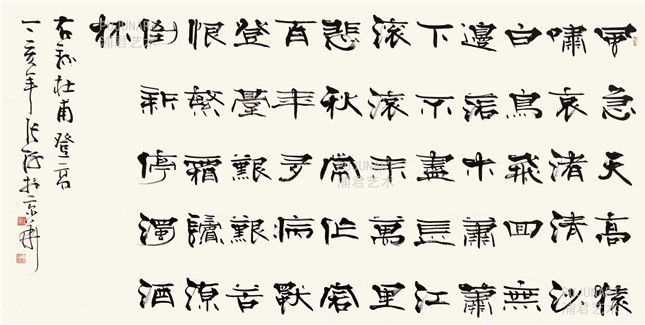 風急天高猿
嘯哀渚清沙
白鳥飛回無
邊落木蕭蕭
下不盡長江
滾滾来萬里
悲秋常作客
百年多病獨
登臺艱難苦
恨繁霜鬢潦
倒新停濁酒
杯
右录杜甫登高
丁亥年张海於京華